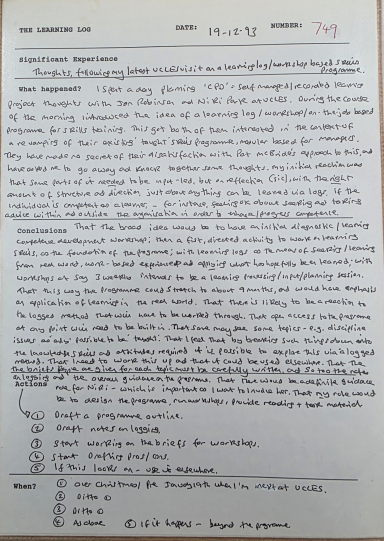 THE LEARNING LOG DATE: 19-12-93 NUMBER: 749
Significant Experience
Thoughts, following my latest UCLES visit on a learning log/workshop based skills
programme.
What happened? I spent a day planning 'CPD' = self managed/recorded learning
project thoughts with Jon Robinson and Niki at UCLES. During the course
of the morning introduced the idea of a learning log/workshop/on-the-job based
programme for skills training. This got both of them interested in the context of
a revamping of their existing taught skills programme, modular based for managers.
They have made no secret of their dissatisfaction with Pat approach to this, and
have asked me to go away and knock together some thoughts. My initial reaction was
that some parts of it needed to be input-led, but on reflection (sic), with the right
amount of structure and direction, just about anything can be learned via logs. If the
individual is competent as a learner, - for instance, feeling ok about seeking and taking
advice within and outside the organisation in order to progress competence.
Conclusions That the broad idea would be to have an initial diagnostic/learning
competence development workshop; then a first, directed activity to work on learning
skills, as the foundation of the programme; with learning logs as the means of seeking/learning
from real work, work-based experience and applying what hopefully be a learned; with
workshops at say 3 weekly intervals to be a learning processing/input/planning session.
That this way the programme could stretch to about 9 months, and would have emphasis
on application of learning in the real world. That there is likely to be a reaction to
the logged method that will have to be worked through. That open access to the programme
at any point will need to be built in. That some may see some topics - e.g. discipline
issues as only possible to be 'taught'. That I feel that by breaking such things down into
the knowledge skills and attitudes required it is possible to explore this via logged
method. That I need to work this up and that it could be used elsewhere. That the
the briefs given for each topic must be carefully written, and so too the notes
on logging and the overall guidance to the programme. That there would be a definite guidance
role for Niki - which is important as I want to involve her. That my role would
be to design the programme, run workshops, provide reading + task material
Actions
① Draft a programme outline.
② Draft notes on logging.
③ Start working on the briefs for workshops.
④ Start drafting pros/cons.
⑤ If this looks on - use it elsewhere.
When? ① Over Christmas/Pre January when I'm next at UCLES.
② Ditto ①
③ Ditto ①
④ As above ⑤ If it happens - beyond the programme